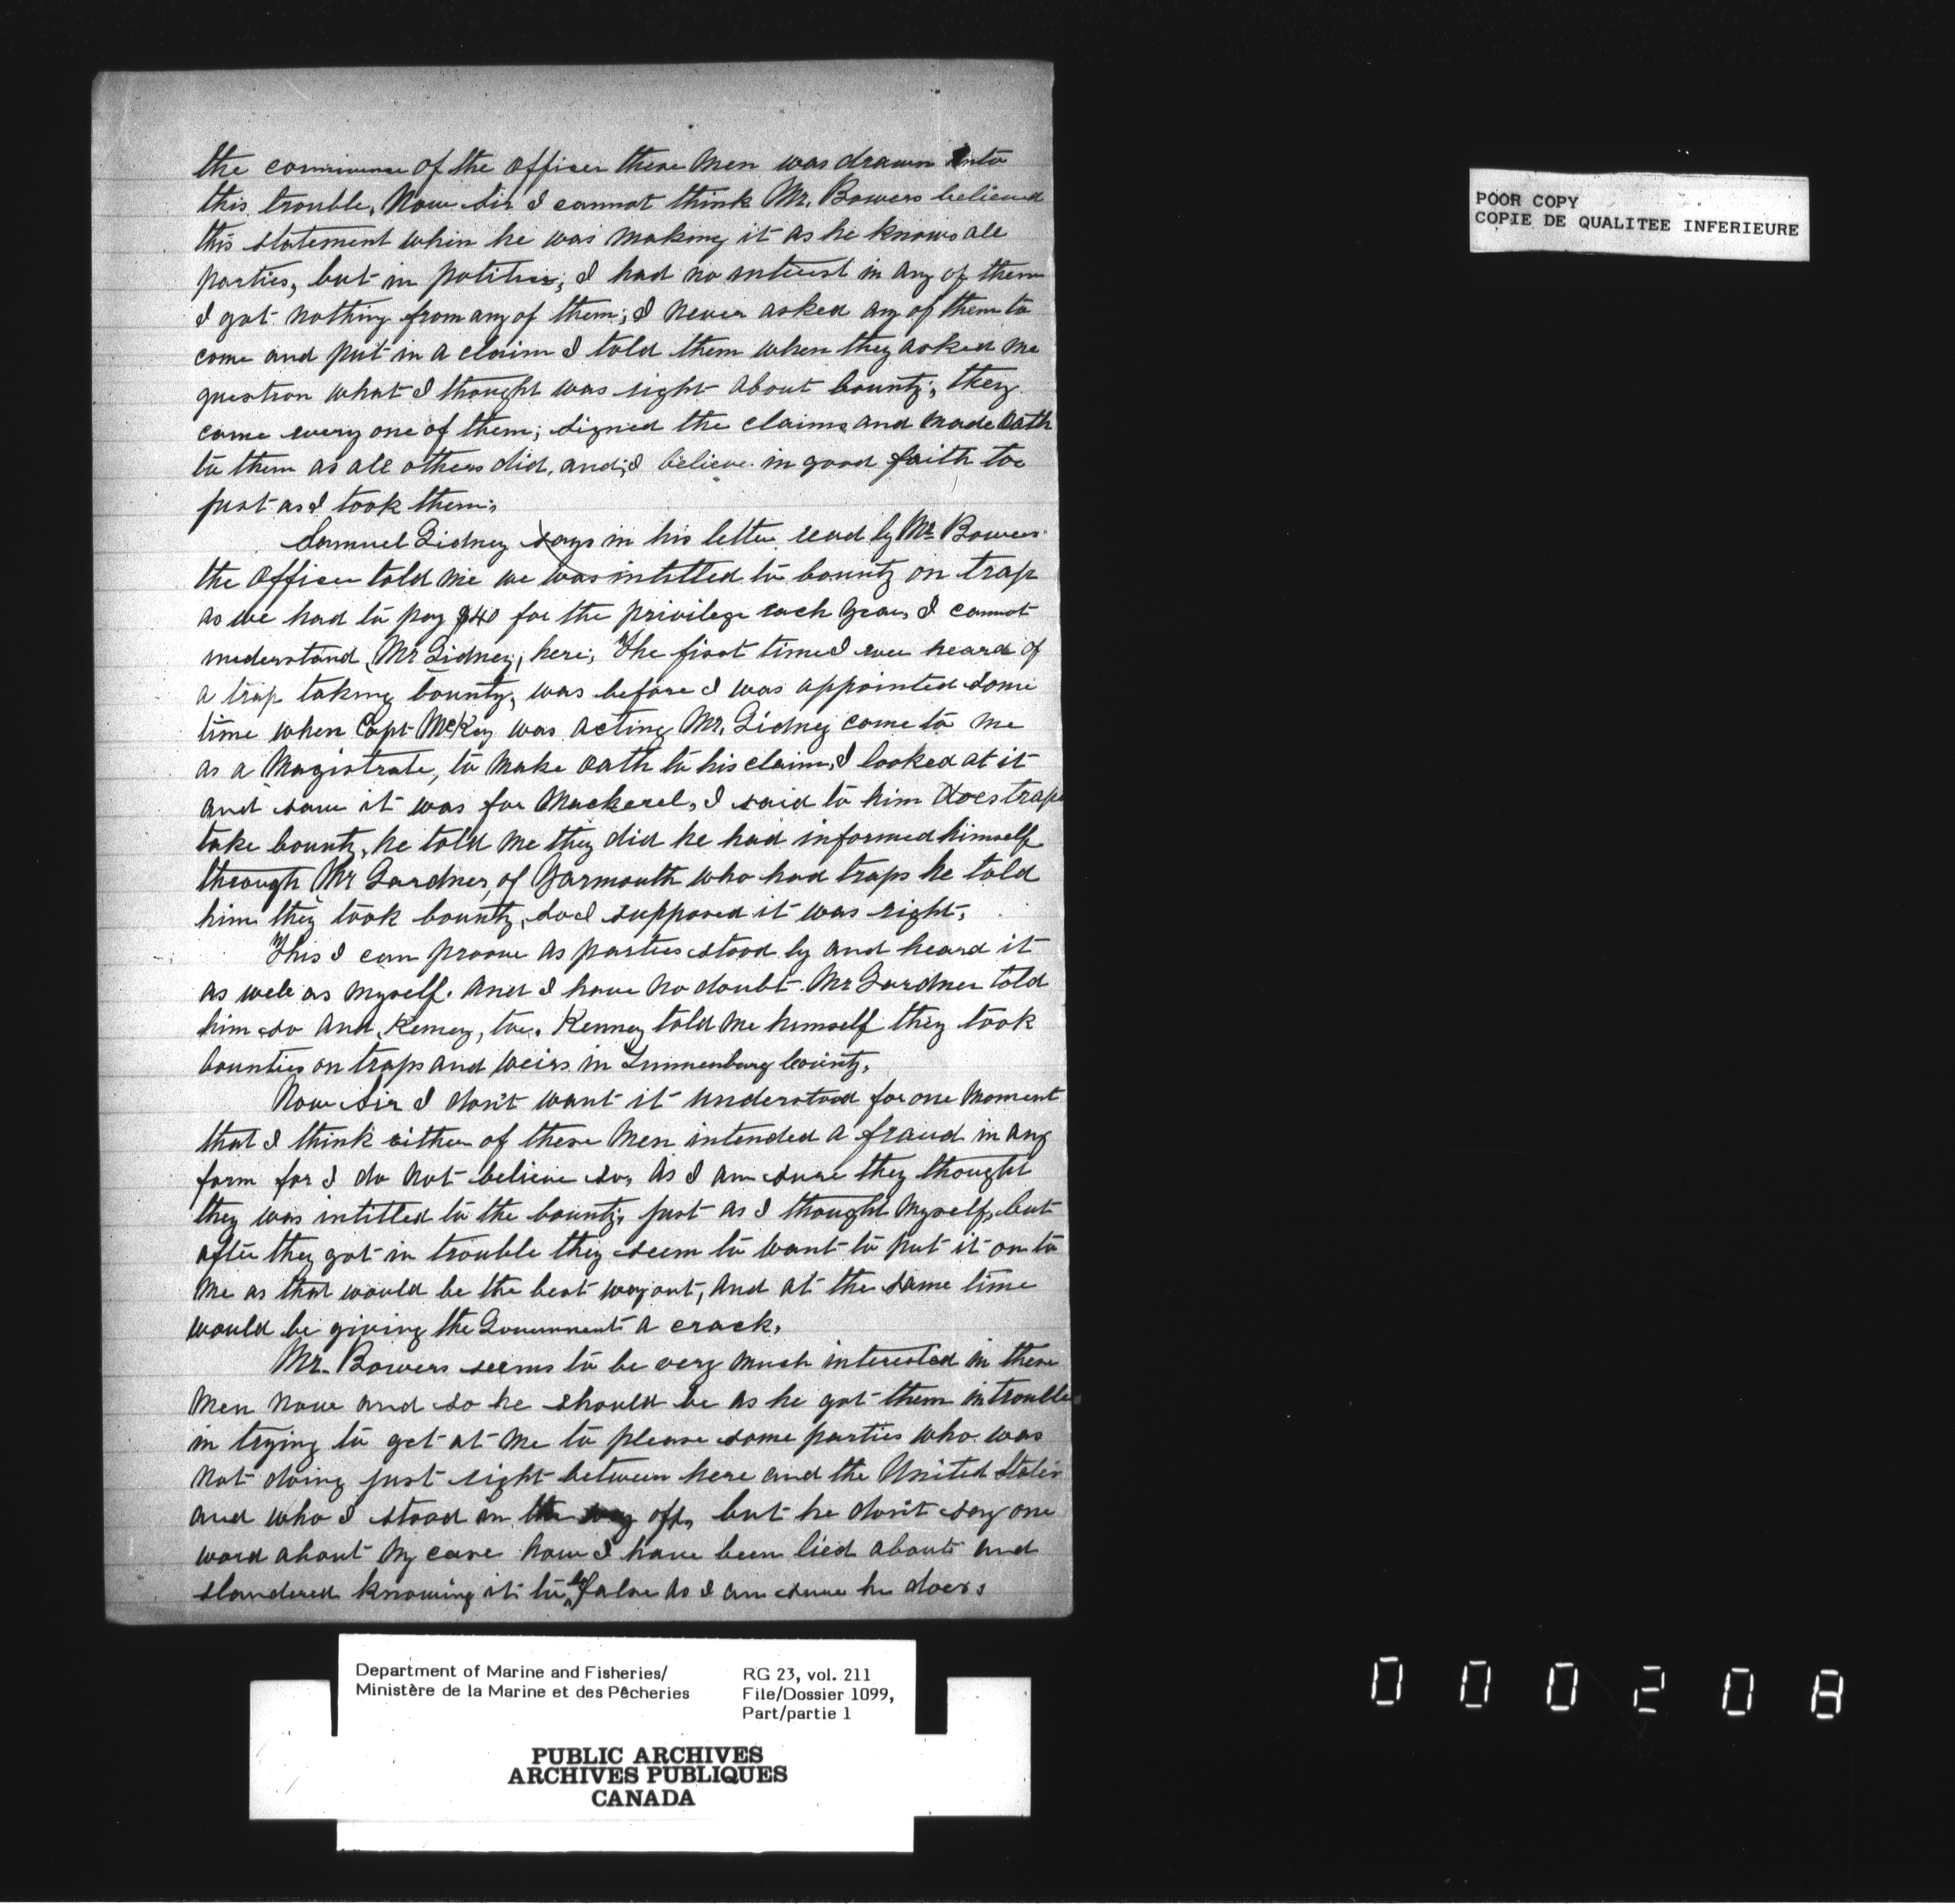 the connivance of the officer these men was drawn into
this trouble, Now Sir I cannot think Mr. Bowers believed
this statement when he was making it as he knows all
parties, but in politics; I had no interest in any of them
I got nothing from any of them; I never asked any of them to
come and put in a claim I told them when they asked me
question what I thought was right about bounty; they
come every one of them; signed the claims and made Oath
to them as all others did, and; I believe in good faith too
just as I took them;
Samuel Sidney says in his letter read by Mr. Bowers
the Officer told me we was intitled to bounty on trap
as we had to pay $40 for the privilege each year, I cannot
understand Mr Sidney, here; The first time I ever heard of
a trap taking bounty, was before I was appointed some
time when Capt McKay was acting Mr. Sidney come to me
as a Magistrate, to make Oath to his claim, I looked at it
and saw it was for Mackerel, I said to him does traps
take bounty, he told me they did he had informed himself
through Mr Gardner, of Yarmouth who had traps he told
him they took bounty, so I supposed it was right;
This I can proove as parties stood by and heard it
as well as myself. And I have no doubt Mr Gardner told
him so And, Kenney, too. Kenney told me himself they took
bounties on traps and weirs in Lunnenburg County,
Now Sir I don't want it understood for one moment
that I think either of these Men intended a fraud in any
form for I do not believe so, as I am sure they thought
they was intitled to the bounty, just as I thought Myself, but
after they got in trouble they seem to want to put it on to
me as that would be the best way out, and at the same time
would be giving the Government a crack,
Mr. Bowers seems to be very much interested in these
men now and so he should be as he got them in trouble
in trying to get at me to please some parties who was
not doing just right between here and the United States
and who I stood in the way off, but he don't say one
word about my case how I have been lied about and
slandered knowing it to be false as I am sure he does;
POOR COPY
COPIE DE QUALITEE INFERIEURE
Department of Marine and Fisheries/
Ministère de la Marine et des Pêcheries
RG 23, vol. 211
File/Dossier 1099,
Part/partie 1
PUBLIC ARCHIVES
ARCHIVES PUBLIQUES
CANADA
000208